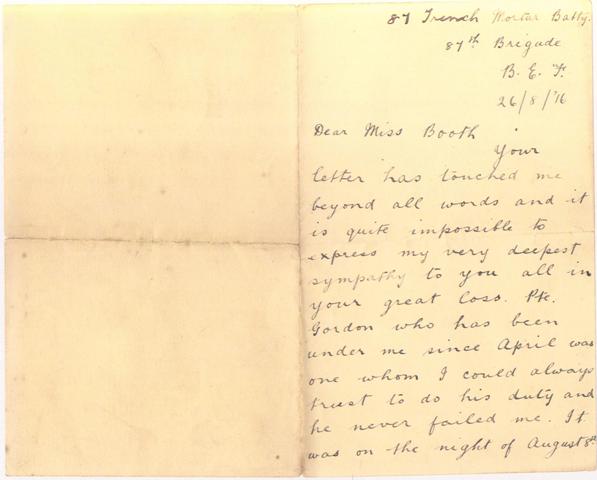 87 Trench Mortar Batty.
87th Brigade
B. E. F.
26/8/'16
Dear Miss Booth
Your
letter has touched me
beyond all words and it
is quite impossible to
express my very deepest
sympathy to you all in
your great loss. Pte.
Gordon who has been
under me since April was
one whom I could always
trust to do his duty and
he never failed me. It
was on the night of August 8th